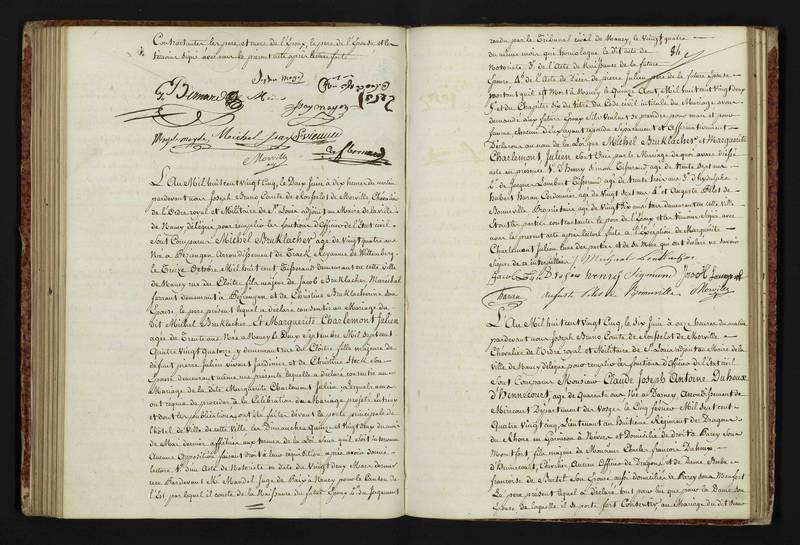 Contractantes les pere et mere de l'Epoux, le pere de l'Epouse et les
témoins signé avec nous le présent acte après lecture faite
Bernard
Michel
Morville
Bernard
L'An Mil huit cent Vingt Cinq, le Deux Juin à dix heures du matin
pardevant nous Joseph Bruno Comte de Morville, Chevalier
de l'Ordre royal et Militaire de St. Louis adjoint au Maire de la ville
de Nancy délégué pour remplir les fonctions d'Officier de l'Etat civil
Sont Comparus Michel Bruklacher agé de Vingt quatre ans
Né à Bezengen Arrondissement de Royaume de Wittemberg
le Treize Octobre Mil huit cent Tisserand demeurant en cette ville
de Nancy rue du Cloitre fils majeur de Jacob Bruklacher Maréchal
ferrant demeurant à Bezengen et de Christine Bruklacherine Son
Epouse le pere présent lequel a déclaré consentir au Mariage du
dit Michel Bruklacher. Et Marguerite Charlemont Julien
agée de trente ans Née à Nancy le Deux Septembre Mil Sept cent
Quatre Vingt Quatorze y demeurant rue du Cloitre fille majeure de
défunt pierre Julien vivant Jardinier et de Christine Hock Son
Epouse demeurant même rue présente laquelle a déclaré consentir au
Mariage de la dite Marguerite Charlemont Julien. Lesquels nous
ont requis de procéder à la Célébration du Mariage projeté entr'eux
et dont les publications ont été faites devant la porte principale de
l'hôtel de Ville de cette Ville les Dimanches Quinze et Vingt deux du mois
de Mai dernier affichées aux termes de la loi. Sans qu'il soit intervenu
Aucune Opposition faisant droit à leur réquisition après avoir donné
lecture 1° d'un Acte de Notoriété en date du Vingt deux Mars dernier
reçu Pardevant Mr. Mandel Juge de Paix à Nancy pour le Canton de
l'Est par lequel il conste de la Naissance du futur Epoux 2° du Jugement
84
rendu par le Tribunal civil de Nancy, le Vingt quatre
du même mois qui homologue le dit acte de
Notoriété 3° de l'Acte de Naissance de la future
Epouse 4° de l'Acte de Décès de pierre Julien pere de la future Epouse
portant qu'il est Mort à Nancy le Quinze Aout Mil huit cent Vingt deux
5° et du Chapitre Six du titre du Code civil intitulé du Mariage avons
demandé aux futurs Epoux S'ils Veulent se prendre pour mari et pour
femme chacun d'eux ayant répondu séparément et Affirmativement
Déclarons au nom de la Loi que Michel Bruklacher et Marguerite
Charlemont Julien Sont Unis par le Mariage de quoi avons dressé
acte en présence 1° d'Henry Simon Tisserand agé de trente Sept ans
2° de Jacques Lambert Tisserand agé de trente trois ans 3° d'hydulphe
hubert Baran Cordonnier agé de Vingt Sept ans 4° et Auguste Pilos de
Bonneville Propriétaire agé de Vingt Six ans tous demeurant en cette ville
Et ont les parties contractantes le pere de l'Epoux et les témoins Signé avec
nous le présent acte après lecture faite à l'Exception de Marguerite
Charlemont Julien l'une des parties et de Sa Mere qui ont déclaré ne Savoir
Signer de ce interpellées
henry Simon
Baran
auguste Pilos de Bonneville
Morville
L'An Mil huit cent Vingt Cinq, le Six Juin à onze heures du matin
pardevant nous Joseph Bruno Comte de Morville
Chevalier de l'Ordre royal et Militaire de St. Louis adjoint au Maire de la
Ville de Nancy délégué pour remplir les fonctions d'Officier de l'Etat civil
Sont Comparus Monsieur Claude Joseph Antoine Duhoux
d'hennecourt, agé de Quarante ans Né à Darney, Arrondissement de
Mirecourt Département des Vosges le Cinq fevrier Mil Sept cent
Quatre Vingt Cinq, Lieutenant au huitieme Régiment de Dragons
du Rhone en Garnison à Nevers et Domicilié de droit à Parey Sous
Montfort, fils majeur de Monsieur Charles francois Duhoux
d'hennecourt, Chevalier, Ancien Officier de Dragons et de Dame Barbe
francoise de Sartel Son Epouse aussi domiciliés à Parey Sous Montfort
Le pere présent lequel a déclaré tant pour lui que pour la Dame Son
Epouse de laquelle il se porte fort Consentir au Mariage du dit Sieur